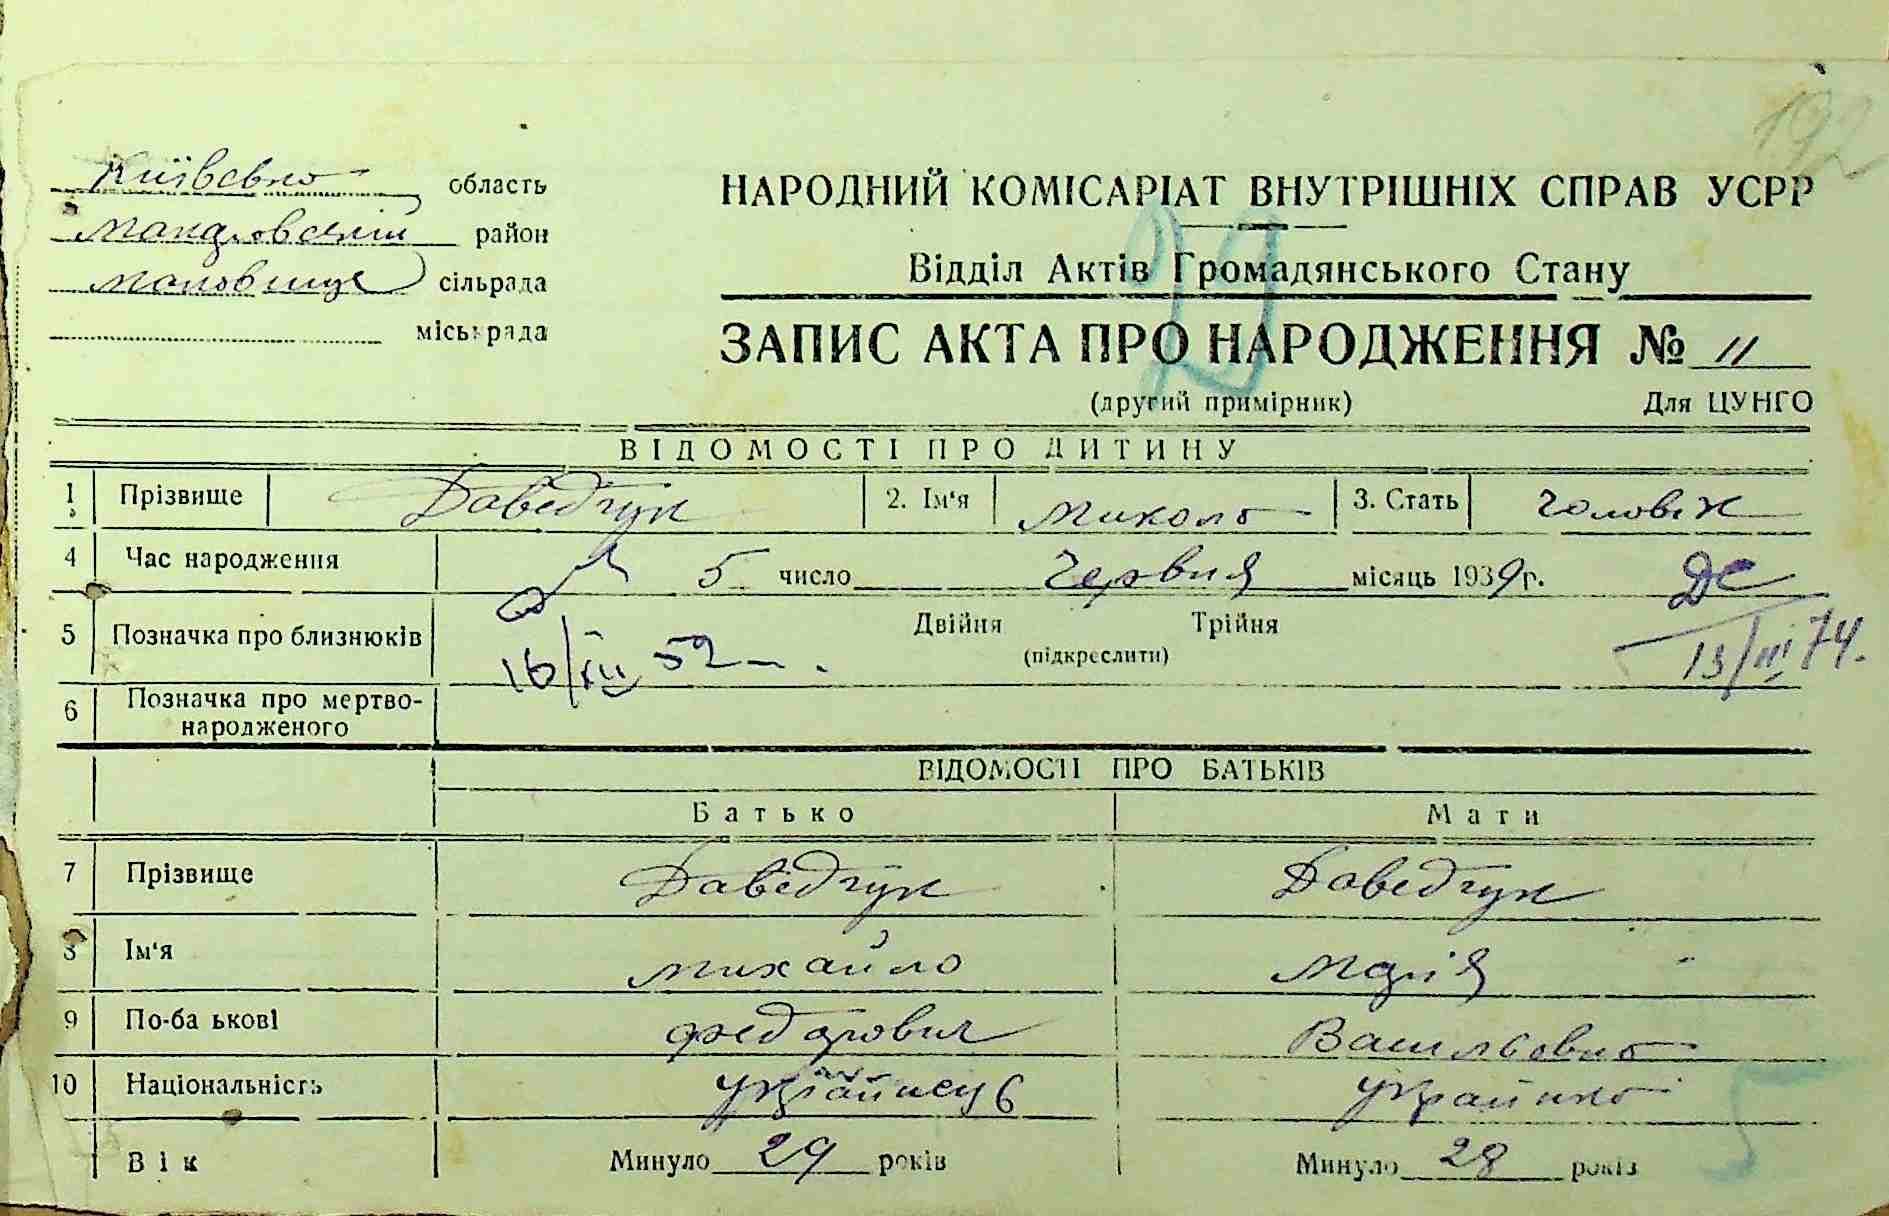 192
Київська область
Макаровський район
Маковище сільрада
міськрада
НАРОДНИЙ КОМІСАРІАТ ВНУТРІШНІХ СПРАВ УСРР
Відділ Актів Громадянського Стану
ЗАПИС АКТА ПРО НАРОДЖЕННЯ № 11
(другий примірник) Для ЦУНГО
ВІДОМОСТІ ПРО ДИТИНУ
1 Прізвище Даведчук 2. Ім'я Микола 3. Стать Чоловік
4 Час народження 5 число Червня місяць 1939 г.
5 Позначка про близнюків Двійня Трійня
(підкреслити)
16/XII 52 13/III 74.
6 Позначка про мертво-
народженого
ВІДОМОСТІ ПРО БАТЬКІВ
Батько Мати
7 Прізвище Даведчук Даведчук
8 Ім'я Михайло Марія
9 По-ба ькові Федорович Васильовна
10 Національність Українець Українка
5
Вік Минуло 29 років Минуло 28 років